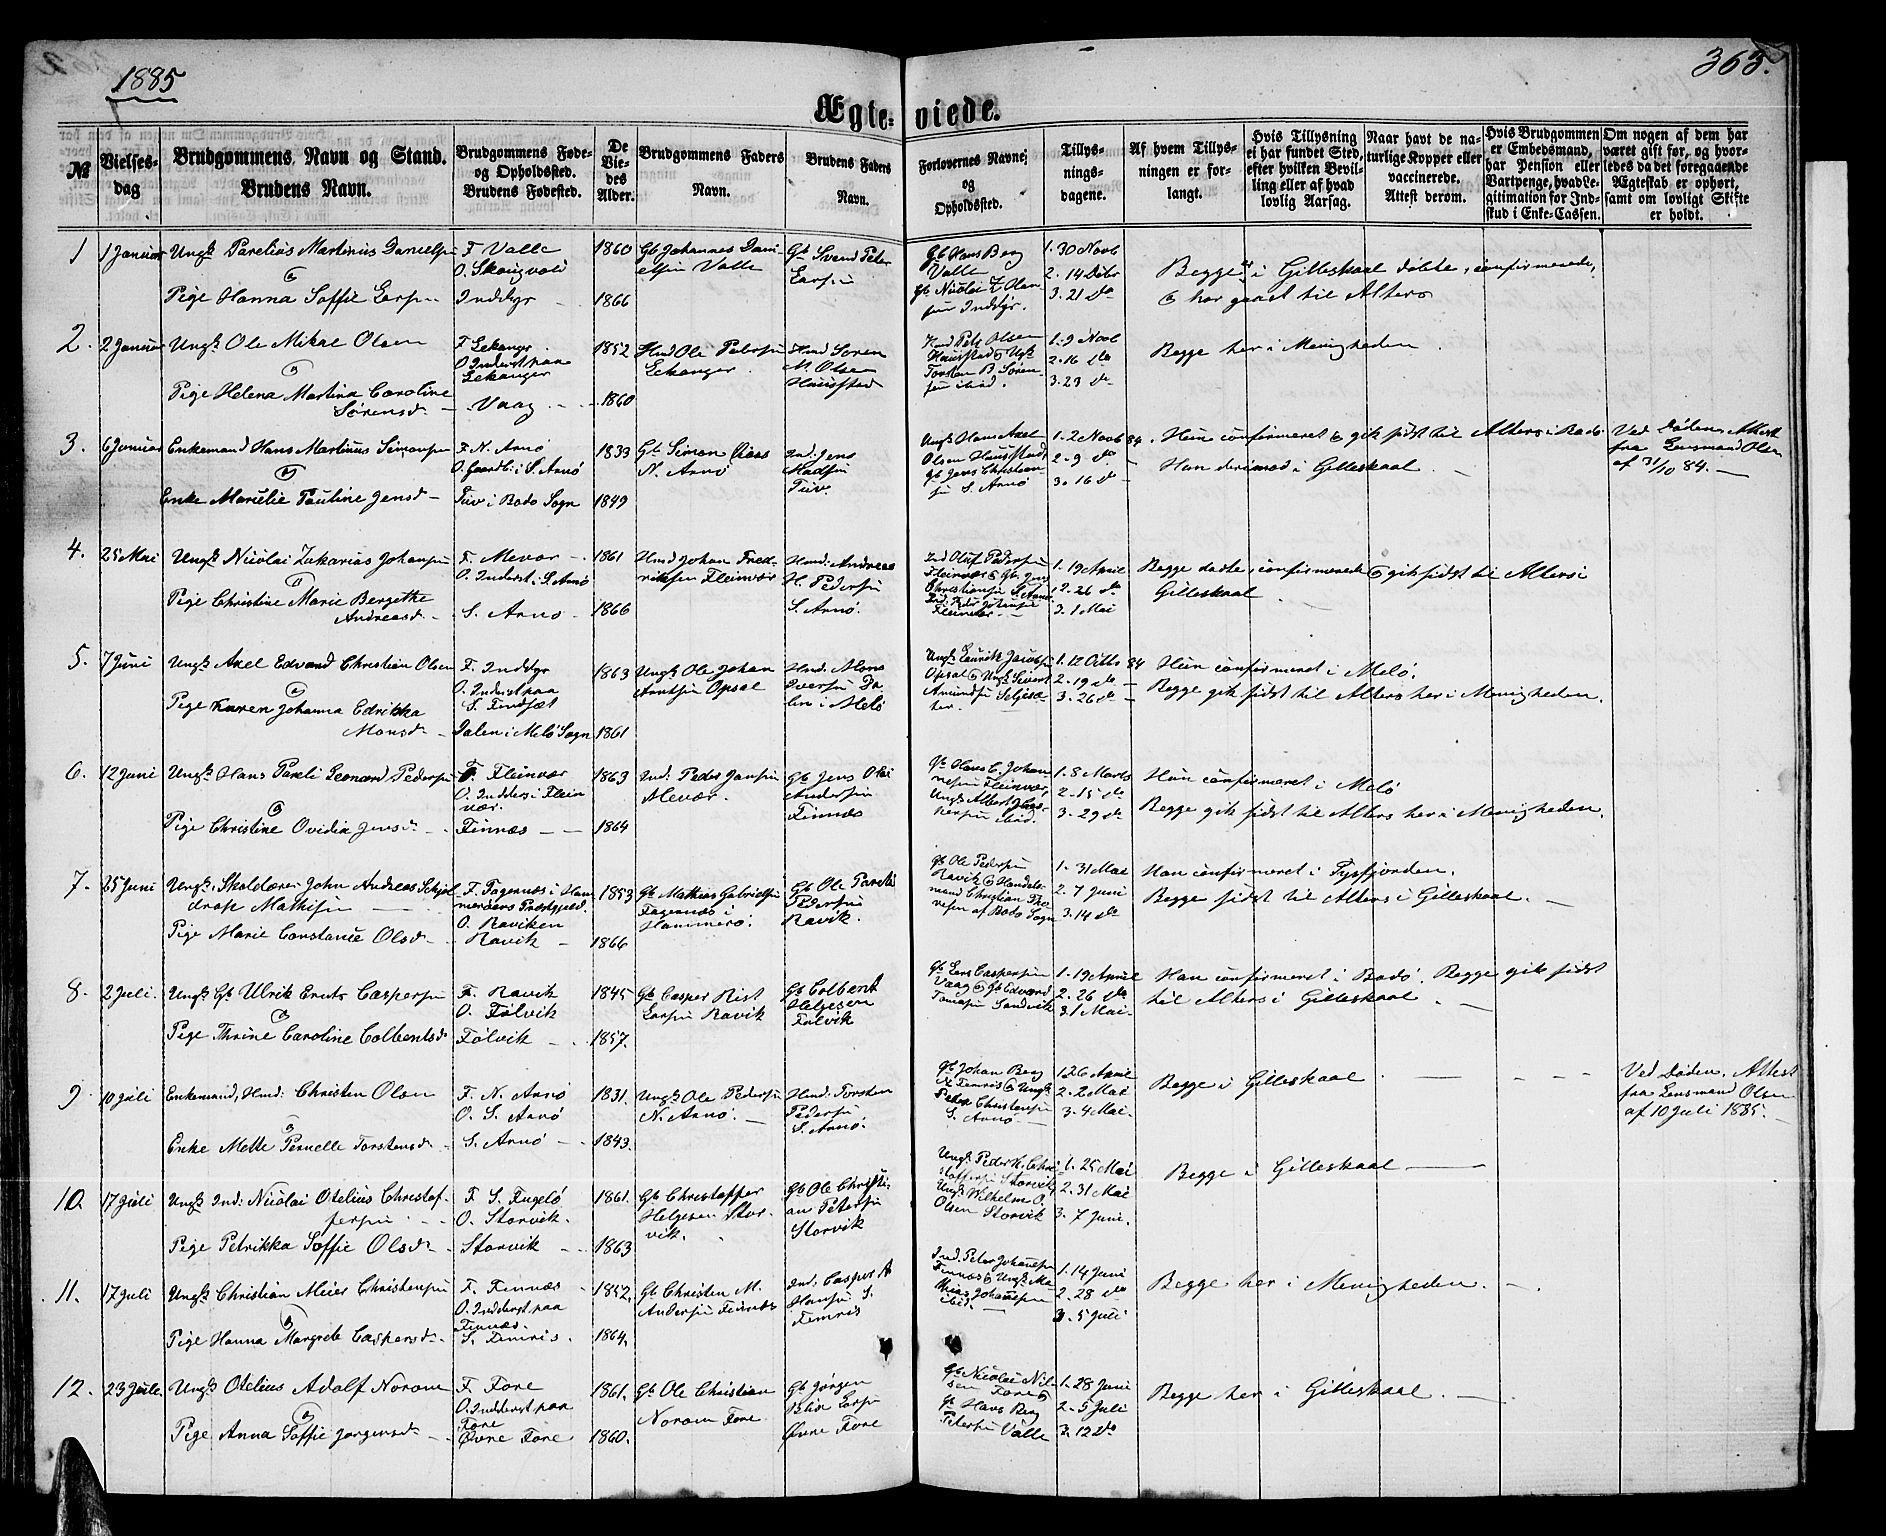 1885
363.
Ægteviede.
№
Vielsesdag
Brudgommens Navn og Stand.
Brudens Navn.
Brudgommens Fødeog Opholdssted.
Brudens Fødested.
De Viedes Alder.
Brudgommens Faders Navn.
Brudens Faders Navn.
Forlovernes Navne og Opholdssted.
Tillysningsdagene.
Af hvem Tillysningen er forlangt.
Hvis Tillysning ei har fundet Sted, efter hvilken Bevilling eller af hvad lovlig Aarsag.
Naar havt de naturlige Kopper eller vaccinerede. Attest derom.
Hvis Brudgommen er Embedsmand, har Pension eller Vartpenge, hvad Legitimation for Indskud i Enke-Cassen.
Om nogen af dem har været gift før, og hvorledes da det foregaaende Ægteskab er ophørt, samt om lovligt Skifte er holdt.
1 1 Januar Ungk Parelius Martinus Danielsen
Pige Hanna Soffie Larsen
F. Valle
Inddyr
1860
1866
Gb Johannes Danielsen Valle
Gb Svend Peter Larsen
Gb Hans Berg Valle
Gb Nicolai Z Olsen Inddyr
1. 30 Novb
2. 14 Debr
3. 21 do
Begge i Gilleskaal døbte, confirmerede,
og har gaaet til Alters
2. 2 Januar Ungk Ole Mikal Olsen
Pige Helena Martina Caroline Sørensd
F Lekanger
O Inderst paa Lekanger
Vaag
1852
1860
Hmd Ole Pedersen Lekanger
Hmd Søren M. Olsen Haugstad
Torsten B. Sørensen ibid.
1. 9 Novb
2. 16 do
3. 23 do
Begge her i Menigheden
3. 6 Januar Enkemand Hans Martinus Simonsen
Enke Marselie Pauline Jensd
F. N. Arnø
O. Gaardb. i S. Arnø
Tuv i Bodø Sogn
1833
1849
Gb Simon Olsen N. Arnø
Ind. Jens Madsen Tuv
Ungk Hans Axel Olsen Haugstad,
Gb Jens Christiansen S. Arnø
1. 2 Novb 84
2. 9 do
3. 16 do
Hun confirmeret og gik sidst til Alters i Bodø
Han derimod i Gilleskaal
Ved Døden, Attest
fra Lensmand Olsen
af 31/10 84.
4. 25 Mai Ungk Nicolai Zakarias Johansen
Pige Christine Marie Bergethe Andreasd
F. Mevær
O. Inderst i S. Arnø
S. Arnø
1861
1866
Hmd Johan Fredriksen Fleinvær
Hmd. Andreas H. Pedersen S. Arnø.
Ind Oluf Pedersen Fleinvær og Gb. Jens Christiansen S. Arnø
Ind. Peder Johansen Fleinvær
1. 19 April
2. 26 do
3. 1 Mai
Begge døbte, confirmerede og gik sidst til Alters i
Gilleskaal
5. 7 Juni Ungk Axel Edvard Christian Olsen
Pige Karen Johanna Edrikka Monsd
F. Inddyr
O. Inderst paa
Dalen i Melø Sogn
1863
1861
Ungk Ole Johan Arntsen Opsal
Hmd. Mons Iversen Dalen i Melø
Ungk Laurik Jacobsen Opsal og Ungk Sivert Amundsen
1. 12 Octb 84
2. 19 do
3. 26 do
Hun confirmeret i Melø.
Begge gik sidst til Alters her i Menigheden.
6. 12 Juni Ungk Hans Pareli Leonard Pedersen
Pige Christine Ovidia Jensd
F. Fleinvær
O. Inderst i Fleinvær.
Finnæs
1863
1864
Ind. Peder Jansen Mevær.
Gb Jens Olai Andersen Finnæs
Gb Hans C. Johannesen Fleinvær,
Ungk Albert ibid.
1. 8 Marts
2. 15 do
3. 29 do
Hun confirmeret i Melø
Begge gik sidst til Alters her i Menigheden.
7. 25 Juni Ungk. Skolelærer John Andreas Schjeldrop Mathisen
Pige Marie Constance Olsd
F. Fagernæs i Hammerøens Præstegjeld
O. Raviken
Ravik
1853
1866
Gb Mathias Gabrielsen Fagernæs i Hammerø.
Gb Ole Pareli Pedersen Ravik.
Gb Ole Pedersen Ravik og Handelsmand Christian af Bodø Sogn
1. 31 Mai
2. 7 Juni
3. 14 do
Han confirmeret i Tysfjorden.
Begge sidst til Alters i Gilleskaal.
8. 2 Juli. Ungk Gb Ulrik Ernts Caspersen
Pige Thrine Caroline Colbentsd
F. Ravik
O. Følvik
Følvik
1845
1857.
Gb Casper Rist Larsen Ravik
Gb Colbent Helgesen Følvik
Gb Lars Caspersen Vaag og Gb Edvard Tomasen Sandvik
1. 19 April
2. 26 do
3. 1 Mai
Han confirmeret i Bodø. Begge gik sidst
til Alters i Gilleskaal
9 10 Juli Enkemand, Hmd. Christen Olsen
Enke Mette Pernelle Torstensd
F. N. Arnø
O. S. Arnø
S. Arnø
1831.
1843.
Ungk Ole Pedersen N. Arnø.
Hmd. Torsten Pedersen S. Arnø.
Gb Johan Berg Femris og Ungk Peter Christensen S. Arnø
1. 26 April
2. 2 Mai
3. 4 Mai.
Begge i Gilleskaal
Ved Døden, Attest
fra Lensmand Olsen
af 10 Juli 1885.
10. 17 Juli Ungk Ind: Nicolai Otelius Christoffersen
Pige Petrikka Soffie Olsd
F. S. Fugelø
O. Storvik.
Storvik
1861.
1863
Gb Christoffer Helgesen Storvik.
Gb Ole Christian Petersen Storvik
Ungk Peder K. Christoffersen Storvik,
Ungk Wilhelm O. Olsen Storvik
1. 25 Mai
2. 31 Mai
3. 7 Juni.
Begge i Gilleskaal
11. 17 Juli Ungk Christian Meier Christensen
Pige Hanna Margrete Caspersd
F. Finnæs
O. Inderst paa Finnæs.
S. Femris.
1852.
1864.
Gb Christen M. Andersen Finnæs
Ind. Casper A Hansen S. Femris
Ind. Peter Johansen Finnæs og Ungk Mathias Johansen ibid.
1. 14 Juni
2. 28 do
3. 5 Juli
Begge her i Menigheden.
12. 23 Juli. Ungk Otelius Adolf Norom
Pige Anna Soffie Jørgensd
F. Fore
O. Inderst paa Fore
Øvre Fore
1861.
1860.
Gb Ole Christian Norom Fore.
Gb Jørgen Blix Larsen Øvre Fore
Gb Nicolai Nilsen Fore og
Gb Hans Berg Petersen Valle
1. 28 Juni
2. 5 Juli
3. 12 do
Begge her i Gilleskaal.